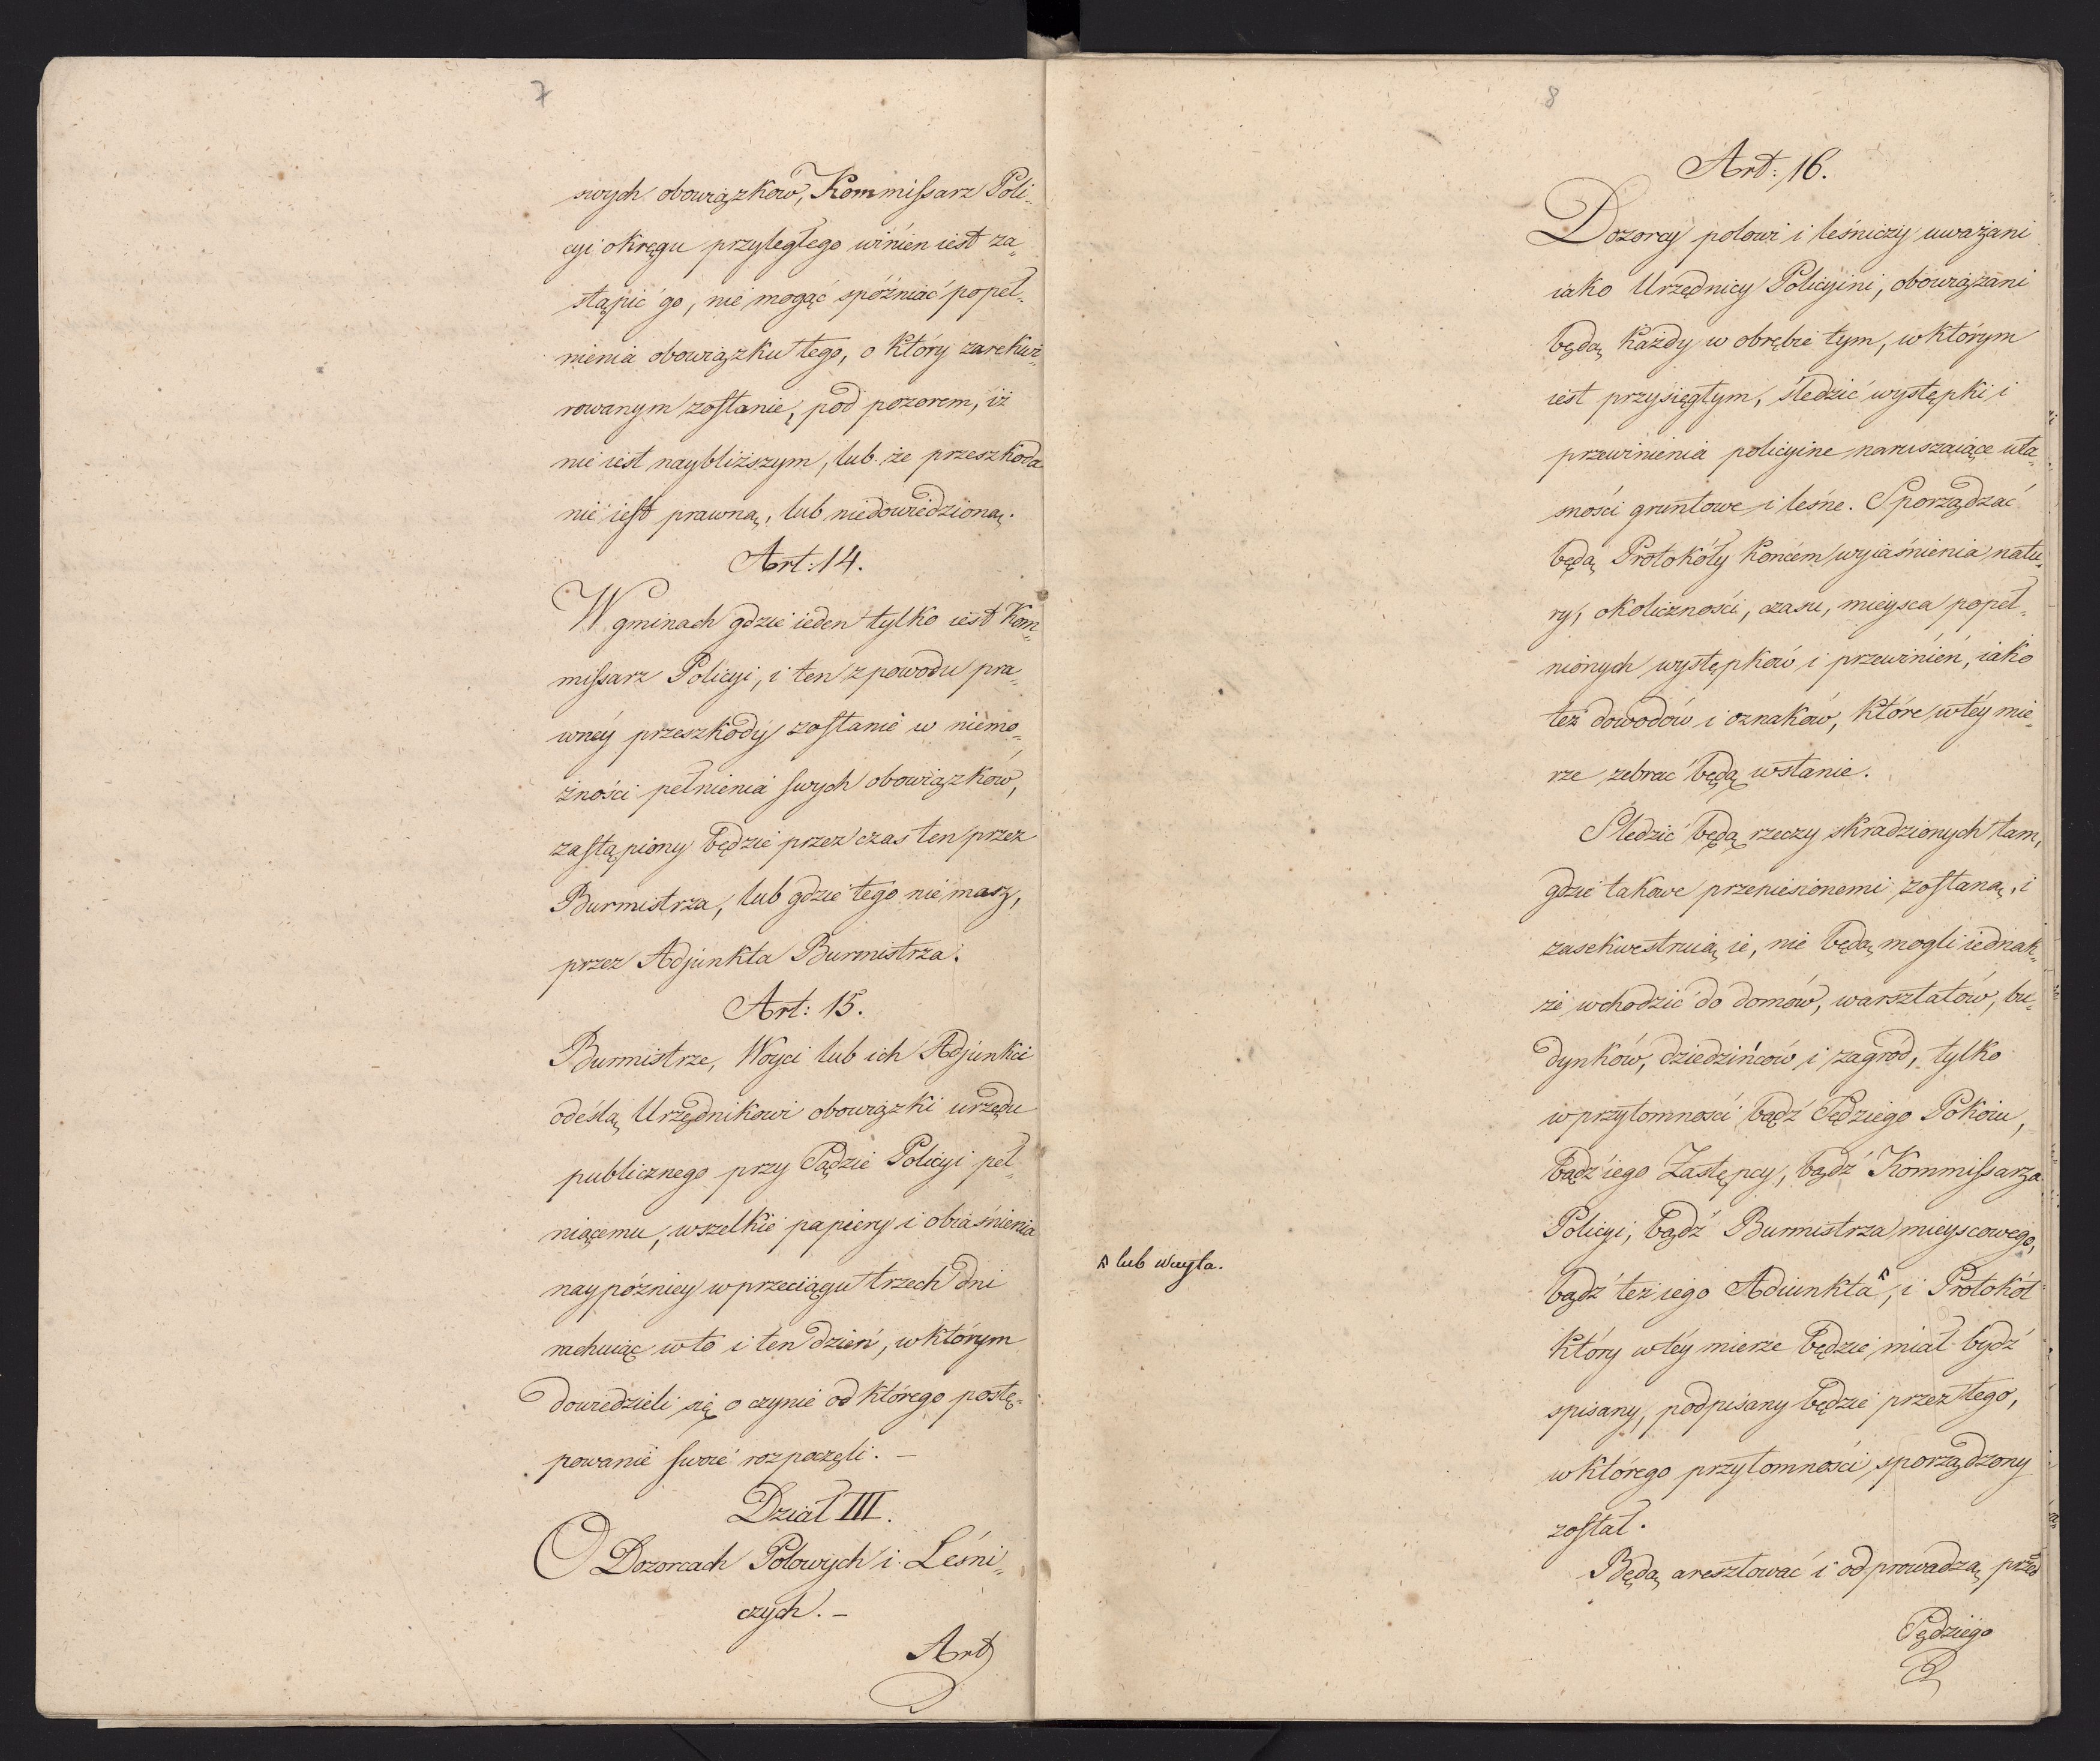 7
swych obowiązków, Kommissarz Poli„
cyi okręgu przyległego winien iest za„
stąpić go, nie mogąc spóźniać popeł„
nienia obowiązku tego, o który zarekwi„
rowanym zostanie, pod pozorem, iż
nie iest naybliższym, lub że przeszkoda
nie iest prawną, lub niedowiedzioną.
Art: 14.
W gminach gdzie ieden tylko iest Kom„
missarz Policyi, i ten z powodu pra„
wnéy przeszkody zostanie w niemo„
żności pełnienia swych obowiązków,
zastąpiony będzie przez czas ten przez
Burmistrza, lub gdzie tego nie masz,
przez Adjunkta Burmistrza.
Art: 15.
Burmistrze, Woyci lub ich Adjunkci
odeślą Urzędnikowi obowiązki urzędu
publicznego przy Sądzie Policyi peł„
niącemu, wszelkie papiery i obiaśnienia
naypóźniey w przeciągu trzech dni
rachuiąc w to i ten dzień, w którym
dowiedzieli się o czynie od którego postę„
powanie swoie rozpoczęli. —
Dział III.
O Dozorcach Polowych i Leśni„
czych. —
Art
8
Art: 16.
Dozorcy polowi i leśniczy uważani
iako Urzędnicy Policyini, obowiązani
będą każdy w obrębie tym, w którym
iest przysięgłym, śledzić występki i
przewinienia policyine naruszaiące wła„
sności gruntowe i leśne. Sporządzać
będą Protokóły końcem wyiaśnienia natu„
ry, okoliczności, czasu, mieysca popeł„
nionych występków i przewinień, iako
też dowodów i oznaków, które w téy mie„
rze zebrać będą w stanie.
Śledzić będą rzeczy skradzionych tam,
gdzie takowe przeniesionemi zostaną, i
zasekwestruią ie, nie będą mogli iednak„
że wchodzić do domów, warsztatów, bu„
dynków, dziedzińców i zagród, tylko
w przytomności bądź Sędziego Pokoiu,
bądź iego Zastępcy, bądź Kommissarza
Policyi, bądź Burmistrza mieyscowego,
lub Woyta.
bądź też iego Adiunkta, i Protokół
który w téy mierze będzie miał bydź
spisany, podpisany będzie przez tego,
w którego przytomności sporządzony
został.
Będą aresztować i odprowadzą przed
Sędziego